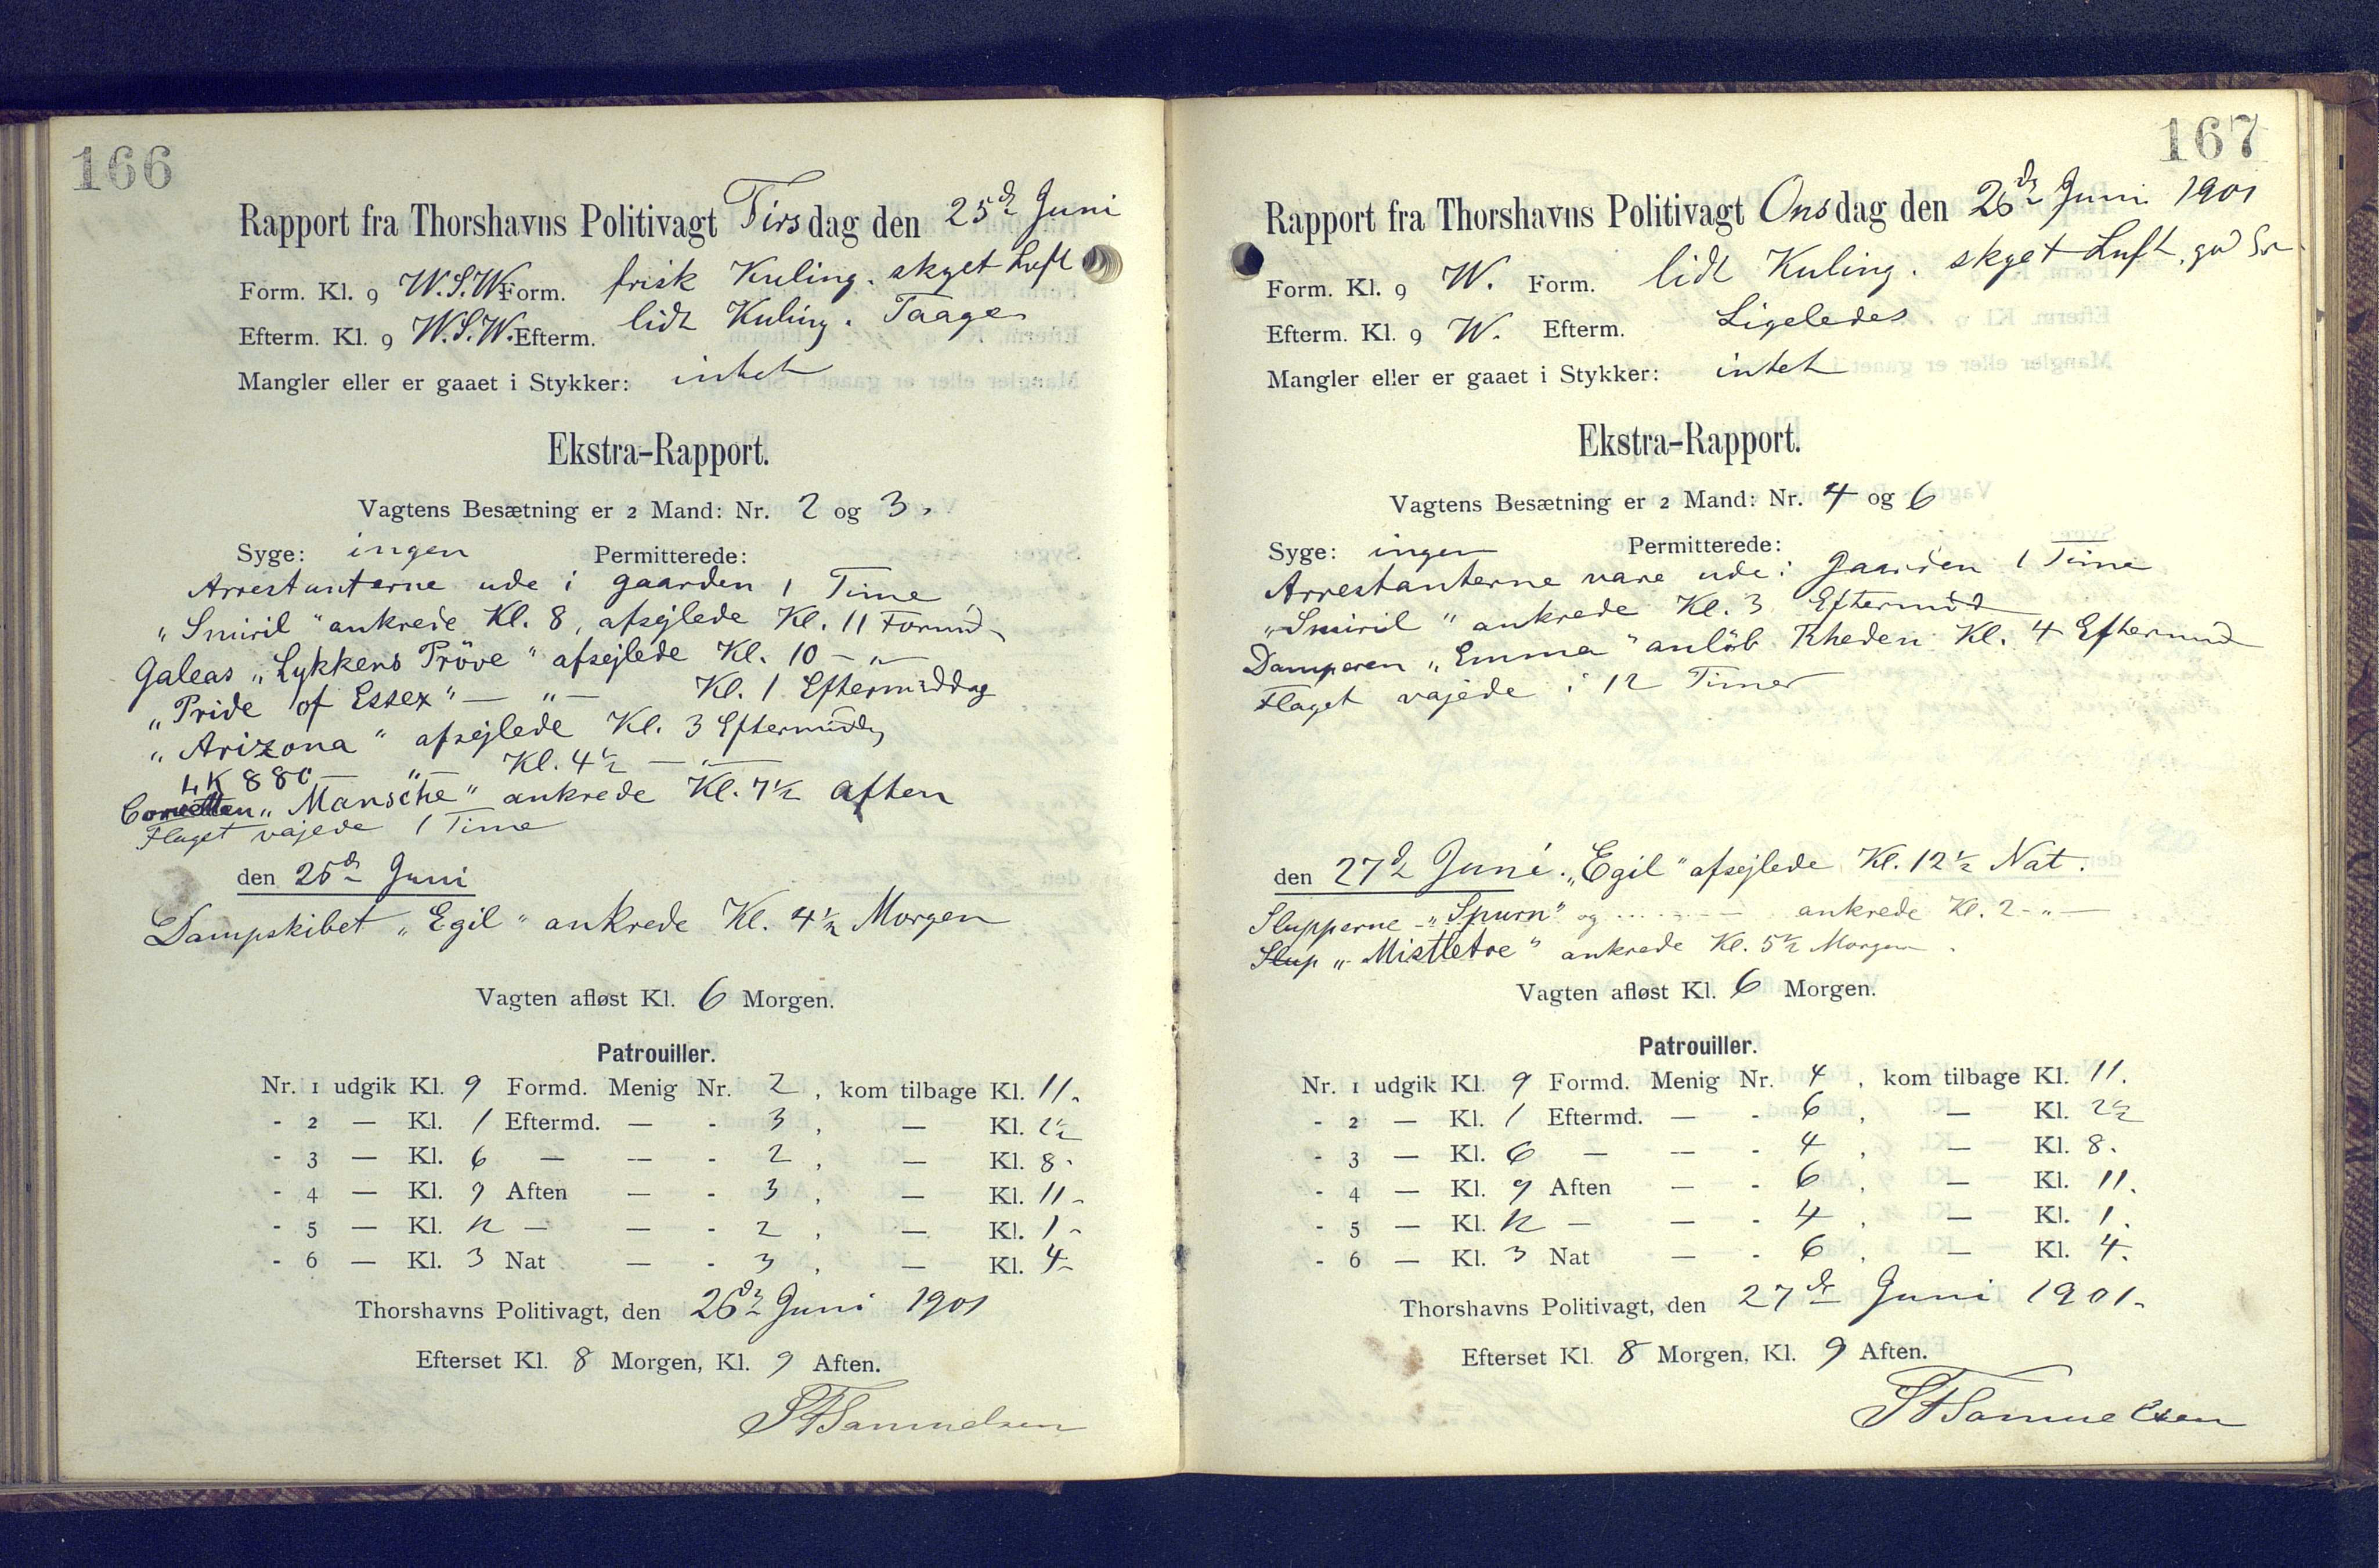 166
Rapport fra Thorshavns Politivagt Tirsdag den 25d Juni
Form. Kl. 9 W.S.W. Form. frisk Kuling. skyet Luft
Efterm. Kl. 9 W.S.W. Efterm. lidt Kuling. Taage
Mangler eller er gaaet i Stykker: intet
Ekstra-Rapport.
Vagtens Besætning er 2 Mand: Nr. 2 og 3.
Syge: ingen Permitterede:
Arrestanterne ude i gaarden 1 Time
"Smiril" ankrede Kl. 8, afsejlede Kl. 11 Formd
Galeas "Lykkens Pröve" afsejlede Kl. 10 — " —
"Pride of Essex" — " — Kl. 1 Eftermiddag
"Arizona" afsejlede Kl. 3 Eftermiddg
LK 880 — " — Kl. 4½ — " —
"Mansche" ankrede Kl. 7½ Aften
Flaget vajede 1 Time
den 26d Juni
Dampskibet "Egil" ankrede Kl. 4½ Morgen
Vagten afløst Kl. 6 Morgen.
Patrouiller.
Nr. 1 udgik Kl. 9 Formd. Menig Nr. 2, kom tilbage Kl. 11.
- 2 — Kl. 1 Eftermd. — - 3, — Kl. 2½
- 3 — Kl. 6 — — - 2, — Kl. 8.
- 4 — Kl. 9 Aften — - 3, — Kl. 11.
- 5 — Kl. 12 — — - 2, — Kl. 1.
- 6 — Kl. 3 Nat — - 3, — Kl. 4.
Thorshavns Politivagt, den 26d Juni 1901
Efterset Kl. 8 Morgen, Kl. 9 Aften.
Samuelsen
167
Rapport fra Thorshavns Politivagt Onsdag den 26d Juni 1901
Form. Kl. 9 W. Form. lidt Kuling. skyet Luft.
Efterm. Kl. 9 W. Efterm. Ligeledes
Mangler eller er gaaet i Stykker: intet
Ekstra-Rapport.
Vagtens Besætning er 2 Mand: Nr. 4 og 6
Syge: ingen Permitterede:
Arrestanterne vare ude i Gaarden 1 Time
"Smiril" ankrede Kl. 3 Eftermd
Damperen "Emma" anlöb Rheden Kl. 4 Eftermd
Flaget vajede i 12 Timer
den 27d Juni. "Egil" afsejlede Kl. 12½ Nat.
Slupperne "Spurn" og ...... — ankrede Kl. 2 - " —
Slup "Mistletoe" ankrede Kl. 5½ Morgen.
Vagten afløst Kl. 6 Morgen.
Patrouiller.
Nr. 1 udgik Kl. 9 Formd. Menig Nr. 4, kom tilbage Kl. 11.
- 2 — Kl. 1 Eftermd. — - 6, — Kl. 2½
- 3 — Kl. 6 — — - 4, — Kl. 8.
- 4 — Kl. 9 Aften — - 6, — Kl. 11.
- 5 — Kl. 12 — — - 4, — Kl. 1.
- 6 — Kl. 3 Nat — - 6, — Kl. 4.
Thorshavns Politivagt, den 27d Juni 1901.
Efterset Kl. 8 Morgen, Kl. 9 Aften.
Samuelsen